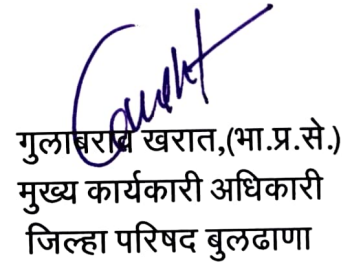 गुलाबराव खरात,(भा.प्र.से.)
मुख्य कार्यकारी अधिकारी
जिल्हा परिषद बुलढाणा